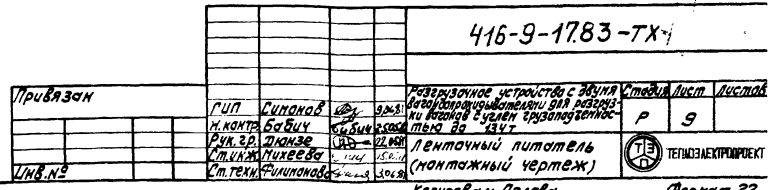 416-9-17.83-ТХ
Привязан
Инв.№
ГИП Симонов
Н.контр. Бабич
Рук.гр. Дюнзе
Ст.инж. Михеева
Ст.техн. Филимонова
Разгрузочное устройство с двумя
вагоноопрокидывателями для разгруз-
ки вагонов с углем грузоподъемнос-
тью до 134т
Стадия Лист Листов
Р 9
Ленточный питатель
(монтажный чертеж)
ТЕПЛОЭЛЕКТРОПРОЕКТ
Копировал
Формат 22